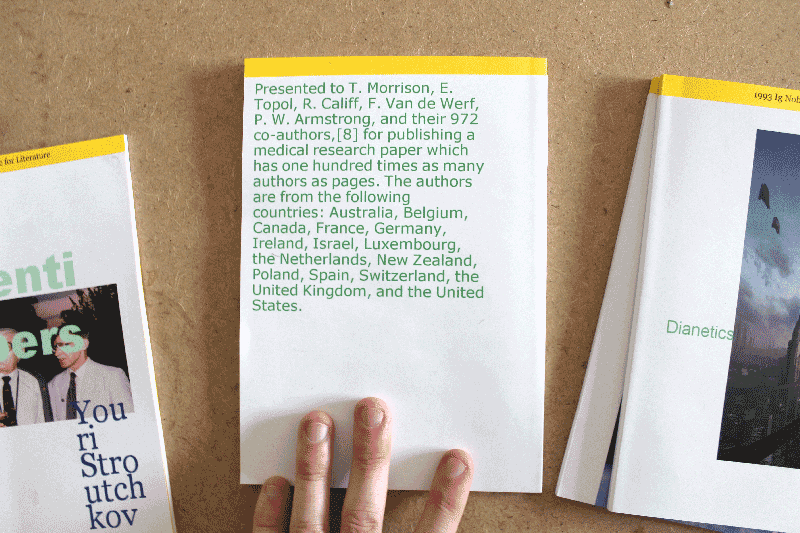 e for Literature
enti
pers
You
ri
Stro
utch
kov
Presented to T. Morrison, E.
Topol, R. Califf, F. Van de Werf,
P. W. Armstrong, and their 972
co-authors,[8] for publishing a
medical research paper which
has one hundred times as many
authors as pages. The authors
are from the following
countries: Australia, Belgium,
Canada, France, Germany,
Ireland, Israel, Luxembourg,
the Netherlands, New Zealand,
Poland, Spain, Switzerland, the
United Kingdom, and the United
States.
1993 Ig Nob
Dianetics